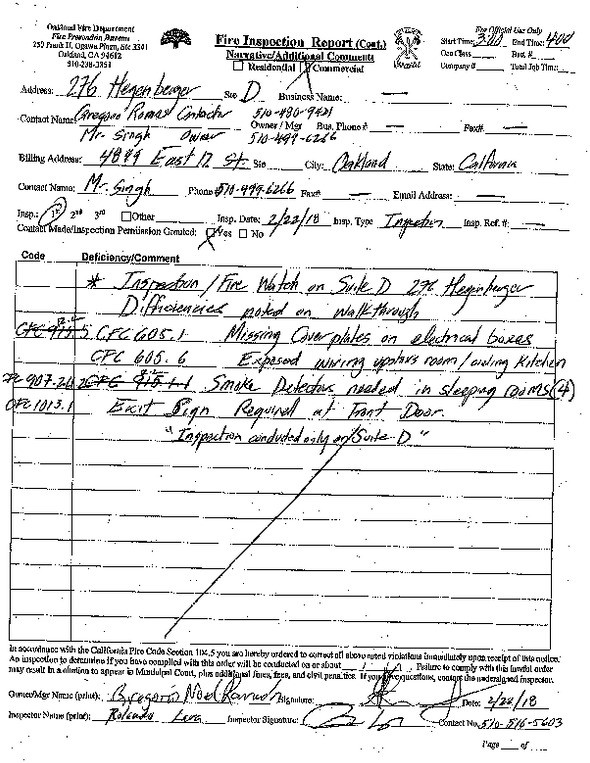 Oakland Fire Department
Fire Prevention Bureau
250 Frank H. Ogawa Plaza, Ste 3341
Oakland, CA 94612
510-238-3851
Fire Inspection Report (Cont.)
Narrative/Additional Comments
Residential Commercial
For Official Use Only
Start Time: 3:00 End Time: 4:00
Occ Class Batt. #:
Company # Total Job Time:
Address: 276 Hegenberger Ste D Business Name: —
Contact Name: Gregorio Romas Contractor 510-480-9421
Mr. Singh Owner Owner / Mgr Bus. Phone# — Fax# —
510-499-6266
Billing Address: 4849 East 12 St. Ste City: Oakland State: California
Contact Name: Mr. Singh Phone# 510-499-6266 Fax# — Email Address: —
Insp.: 1st 2nd 3rd Other Insp. Date: 2/22/18 Insp. Type Inspection Insp. Ref. #: —
Contact Made/Inspection Permission Granted: Yes No
Code Deficiency/Comment
* Inspection / Fire Watch on Suite D 276 Hegenberger
Difficiencies noted on walkthrough
CFC 605.1 Missing Cover plates on electrical boxes
CFC 605.6 Exposed wiring upstairs room / ceiling Kitchen
CFC 907.2.11.2 Smoke Detectors needed in sleeping rooms (4)
CFC 1013.1 Exit Sign Required at front Door.
"Inspection conducted only on Suite D"
In accordance with the California Fire Code Section 104.5 you are hereby ordered to correct all above noted violations immediately upon receipt of this notice.
An inspection to determine if you have complied with this order will be conducted on or about / / . Failure to comply with this lawful order
may result in a citation to appear in Municipal Court, plus additional fines, fees, and civil penalties. If you have questions, contact the undersigned inspector.
Owner/Mgr Name (print): Gregorio Noel Signature: Date: 2/22/18
Inspector Name (print): Inspector Signature: Contact No. 510-515-5603
Page of